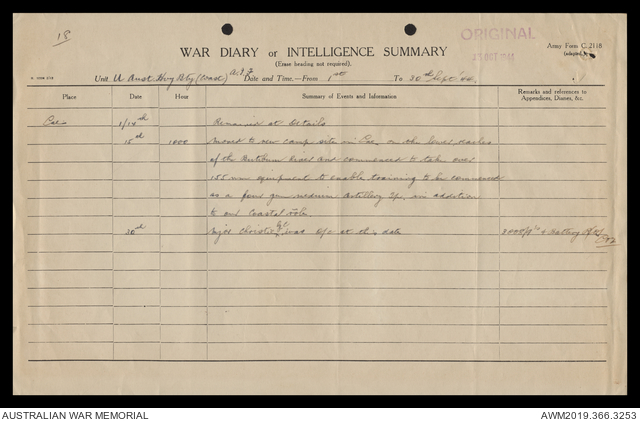 18
ORIGINAL
OCT 1944
Army Form C. 2118
WAR DIARY or INTELLIGENCE SUMMARY
(Erase heading not required).
Unit Aust Hvy Bty (Coast) Date and Time.—From 1st To 30th Sept '44
Place Date Hour Summary of Events and Information Remarks and references to Appendices, Diaries, &c.
Lae 1/14th Remained at Details
15th 1000 Moved to new camp site in Lae, on the lower reaches
of the Butibum River and commenced to take over
155 mm equipment to enable training to be commenced
as a four gun medium Artillery Gp, in addition
to our Coastal role.
30th Major Christie was O/C at this date
AUSTRALIAN WAR MEMORIAL AWM2019.366.3253